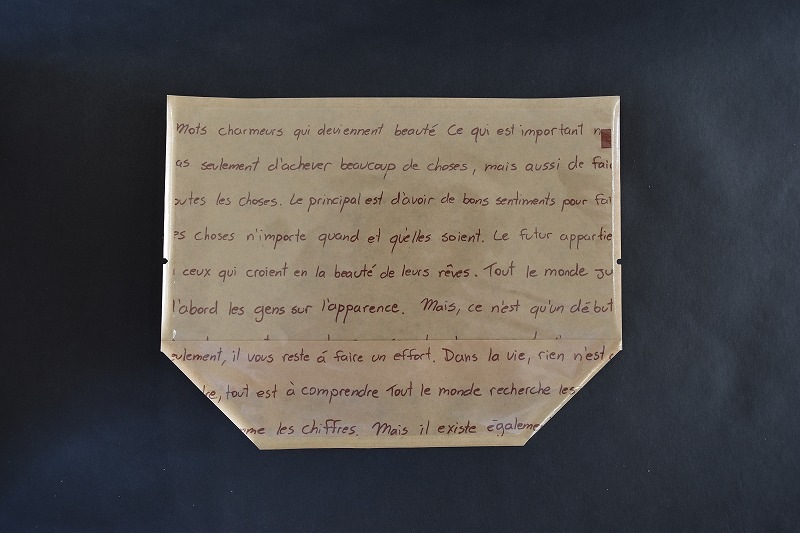 Mots charmeurs qui deviennent beauté Ce qui est important
seulement d'achever beaucoup de choses, mais aussi de
les choses. Le principal est d'avoir de bons sentiments pour
choses n'importe quand et qu'elles soient. Le futur
ceux qui croient en la beauté de leurs rêves. Tout le monde
l'abord les gens sur l'apparence. Mais, ce n'est qu'un début
il vous reste á faire un effort. Dans la vie, rien n'est
tout est à comprendre Tout le monde recherche les
les chiffres. Mais il existe